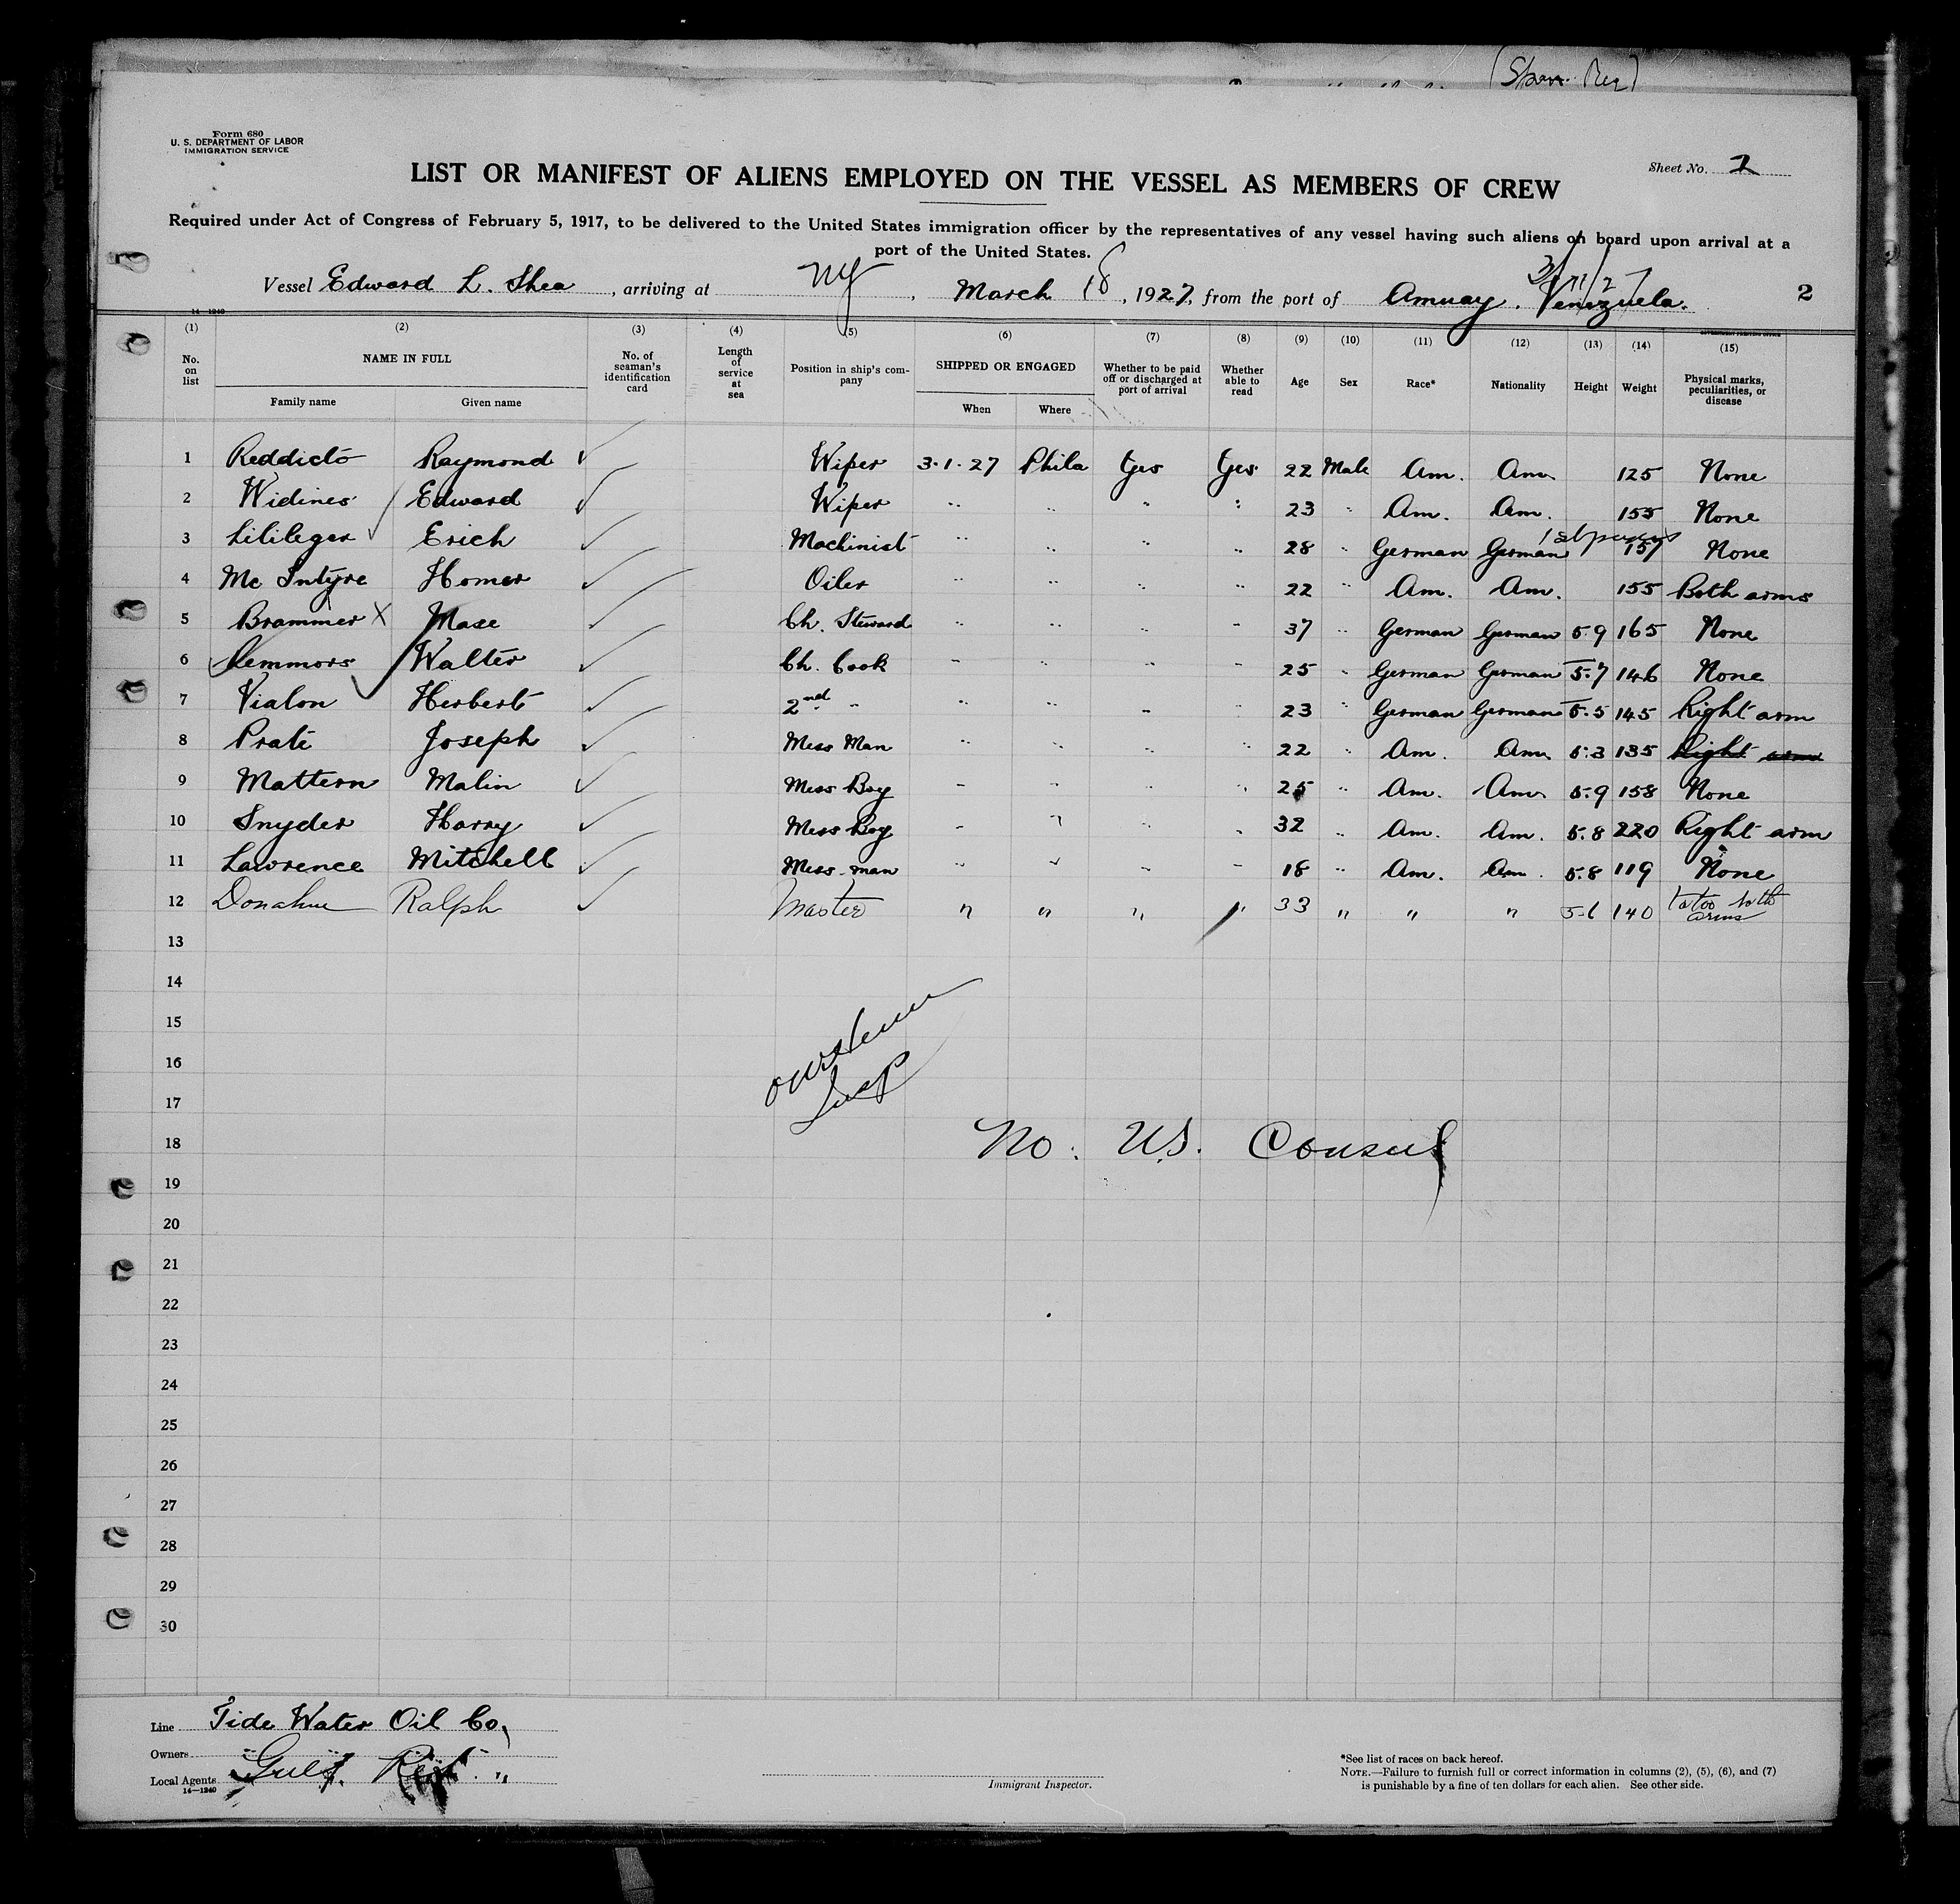 Form 680
U. S. DEPARTMENT OF LABOR
IMMIGRATION SERVICE
Sheet No. 2
LIST OR MANIFEST OF ALIENS EMPLOYED ON THE VESSEL AS MEMBERS OF CREW
Required under Act of Congress of February 5, 1917, to be delivered to the United States immigration officer by the representatives of any vessel having such aliens on board upon arrival at a
port of the United States.
3/11/27
Vessel Edward L. Shea, arriving at NY, March 18, 1927, from the port of Amuay. Venezuela. 2
14—1240
(1) (2) (3) (4) (5) (6) (7) (8) (9) (10) (11) (12) (13) (14) (15)
No. on list NAME IN FULL Family name Given name No. of seaman's identification card Length of service at sea Position in ship's company SHIPPED OR ENGAGED When Where Whether to be paid off or discharged at port of arrival Whether able to read Age Sex Race* Nationality Height Weight Physical marks, peculiarities, or disease
1 Reddicto Raymond Wiper 3.1.27 Phila Yes Yes 22 Male Am. Am. 125 None
2 Widines Edward Wiper " " " " 23 " Am. Am. 155 None
3 Lilileger Erich Machinist " " " " 28 " German German 157 None
4 Mc Intyre Homer Oiler " " " " 22 " Am. Am. 155 Both arms
5 Brammer X Mase Ch. Steward " " " " 37 " German German 5.9 165 None
6 Lemmors Walter Ch. Cook " " " " 25 " German German 5.7 146 None
7 Vialon Herbert 2nd " " " " " 23 " German German 5.5 145 Right arm
8 Prate Joseph Mess Man " " " " 22 " Am. Am. 5.3 135 Right arm
9 Mattern Malin Mess Boy " " " " 25 " Am. Am. 5.9 158 None
10 Snyder Harry Mess Boy " " " " 32 " Am. Am. 5.8 220 Right arm
11 Lawrence Mitchell Mess man " " " " 18 " Am. Am. 5.8 119 None
12 Donahue Ralph Master " " " " 33 " " " 5-6 140 tatoo both arms
13
14
15
16
17
18 No. U.S. Consul
19
20
21
22
23
24
25
26
27
28
29
30
Line Tide Water Oil Co,
Owners
Local Agents Gulf
14—1240
Immigrant Inspector.
*See list of races on back hereof.
NOTE.—Failure to furnish full or correct information in columns (2), (5), (6), and (7)
is punishable by a fine of ten dollars for each alien. See other side.